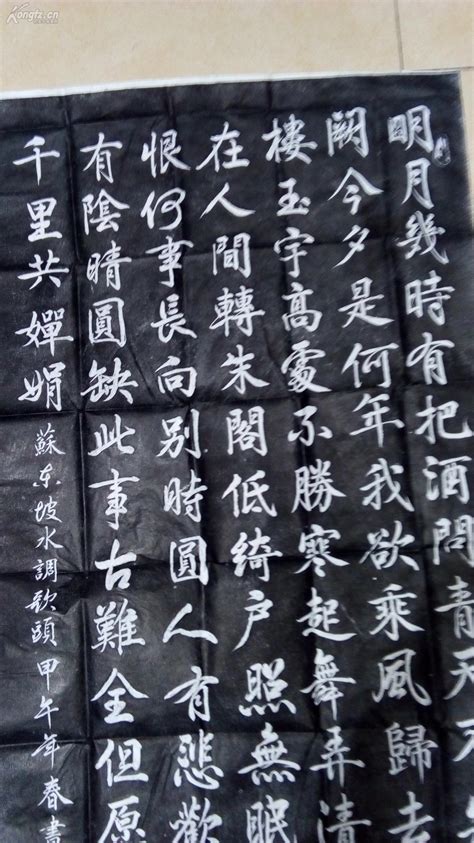 明月幾時有把酒問青天不
闕今夕是何年我欲乘風歸去
樓玉宇高處不勝寒起舞弄清
在人間轉朱閣低綺戶照無眠
恨何事長向別時圓人有悲歡
有陰晴圓缺此事古難全但
千里共嬋娟
蘇東坡水調歌頭甲午年春書
Kongfz.cn